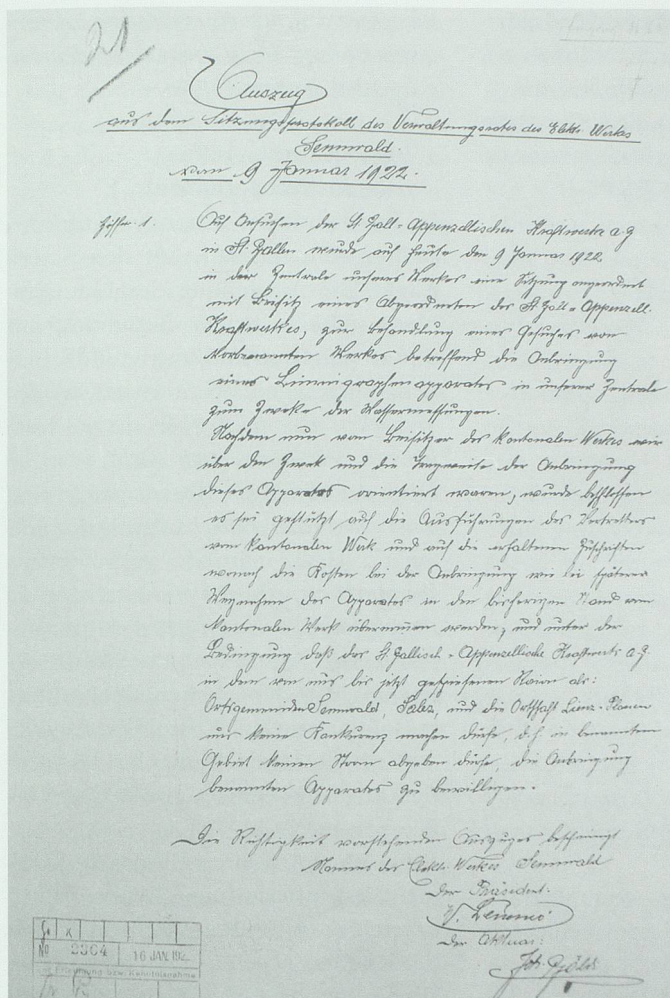 21
Auszug
aus dem Sitzungsprotokoll des Verwaltungsrates des Elektr. Werkes
Sennwald.
vom 9 Januar 1922.
Ziffer. 1.
Auf Ansuchen der St. Gall-Appenzellischen Kraftwerke A.G
in St. Gallen wurde auf heute den 9 Januar 1922
in der Zentrale unseres Werkes eine Sitzung angeordnet
mit Beisitz eines Abgeordneten des St. Gall-Appenzell.
Kraftwerkes, zur Behandlung eines Gesuches von
vorbenannten Werkes betreffend die Anbringung
eines Limnigraphenapparates in unserer Zentrale
zum Zweke der Wassermessungen.
Nachdem nun vom Beisitzer des kantonalen Werkes wir
über den Zwek und die Tragweite der Anbringung
dieses Apparates orientiert waren, wurde beschlossen
es sei gestützt auf die Ausführungen des Vertretters
vom kantonalen Werk und auf die erhaltenen Zuschriften
wonach die Kosten bei der Anbringung wie bei späterer
Wegnahme des Apparates in den bisherigen Stand vom
kantonalen Werk übernommen werden, und unter der
Bedingung daß das St. Gallisch-Appenzellische Kraftwerk A.G.
in dem von uns bis jetzt gespiesenen Raion als:
Ortsgemeinden Sennwald, Salez, und die Ortschaft Lienz-Plonen
uns keine Konkurenz machen dürfe, d.h in benanntem
Gebiet keinen Strom abgeben dürfe, die Anbringung
benannten Apparates zu bewilligen.
Die Richtigkeit vorstehenden Auszuges bescheinigt
Namens des Elektr. Werkes Sennwald
Der Präsident:
Der Aktuar:
No 2364 16 JAN. 192